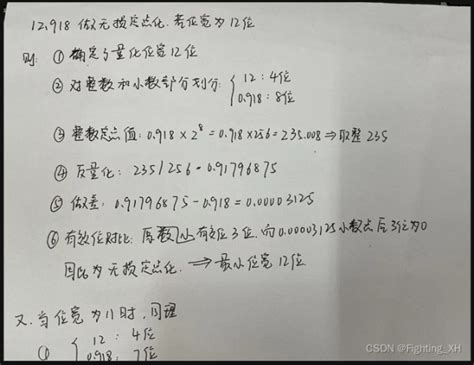 12.918 做无损定点化. 若位宽为12位
则: ① 确定了量化位宽12位
② 对整数和小数部分划分: { 12 : 4位
0.918 : 8位
③ 整数定点值: 0.918 × 2⁸ = 0.918 × 256 = 235.008 ⇒ 取整 235
④ 反量化: 235/256 = 0.91796875
⑤ 做差: 0.91796875 - 0.918 = 0.00003125
⑥ 有效位对比: 原数小数有效位3位, 而0.00003125小数点后3位为0
因此为无损定点化. ⇒ 最小位宽12位
又. 当位宽为11时, 同理
① { 12 : 4位
0.918 : 7位
CSDN @Fighting_XH